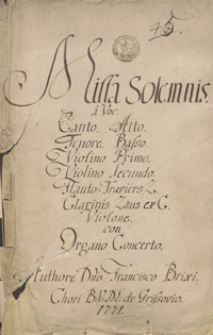 45.
Missa Solemnis.
à Voc:
Canto. Alto.
Tenore. Basso.
Violino Primo.
Violino Secundo.
Flauto Traviers 2.
Clarinis Duus ex C.
Violone.
con
Organo Concerto.
Authore Dño Francisco Brixi.
Chori B.V.M. de Grissovio.
1771.